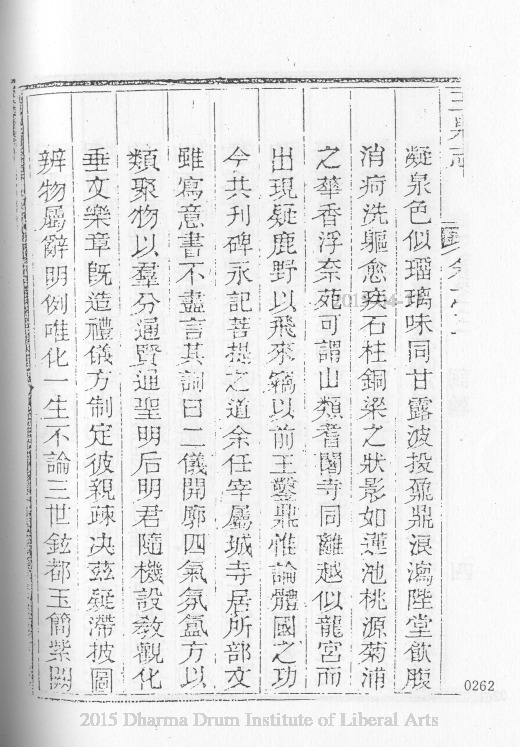 玉泉志
凝泉色似瑠璃味同甘露波投鼐鼎浪瀉陛堂飲腹
消痾洗軀愈疾石桂銅梁之狀影如蓮池桃源菊浦
之華香浮柰苑可謂山類耆闍寺同離越似龍宮而
出現疑鹿野以飛來竊以前王鑿鼎惟論體國之功
今共刊碑永記菩提之道余任宰屬城寺居所部文
雖寫意書不盡言其詞曰二儀開廓四氣氛氳方以
類聚物以羣分通賢通聖明后明君隨機設教觀化
垂文樂章旣造禮儀方制定彼親疎决玆疑滯披圖
辨物屬辭明例唯化一生不論三世鉉都玉簡紫闕
0262
2015 Dharma Drum Institute of Liberal Arts